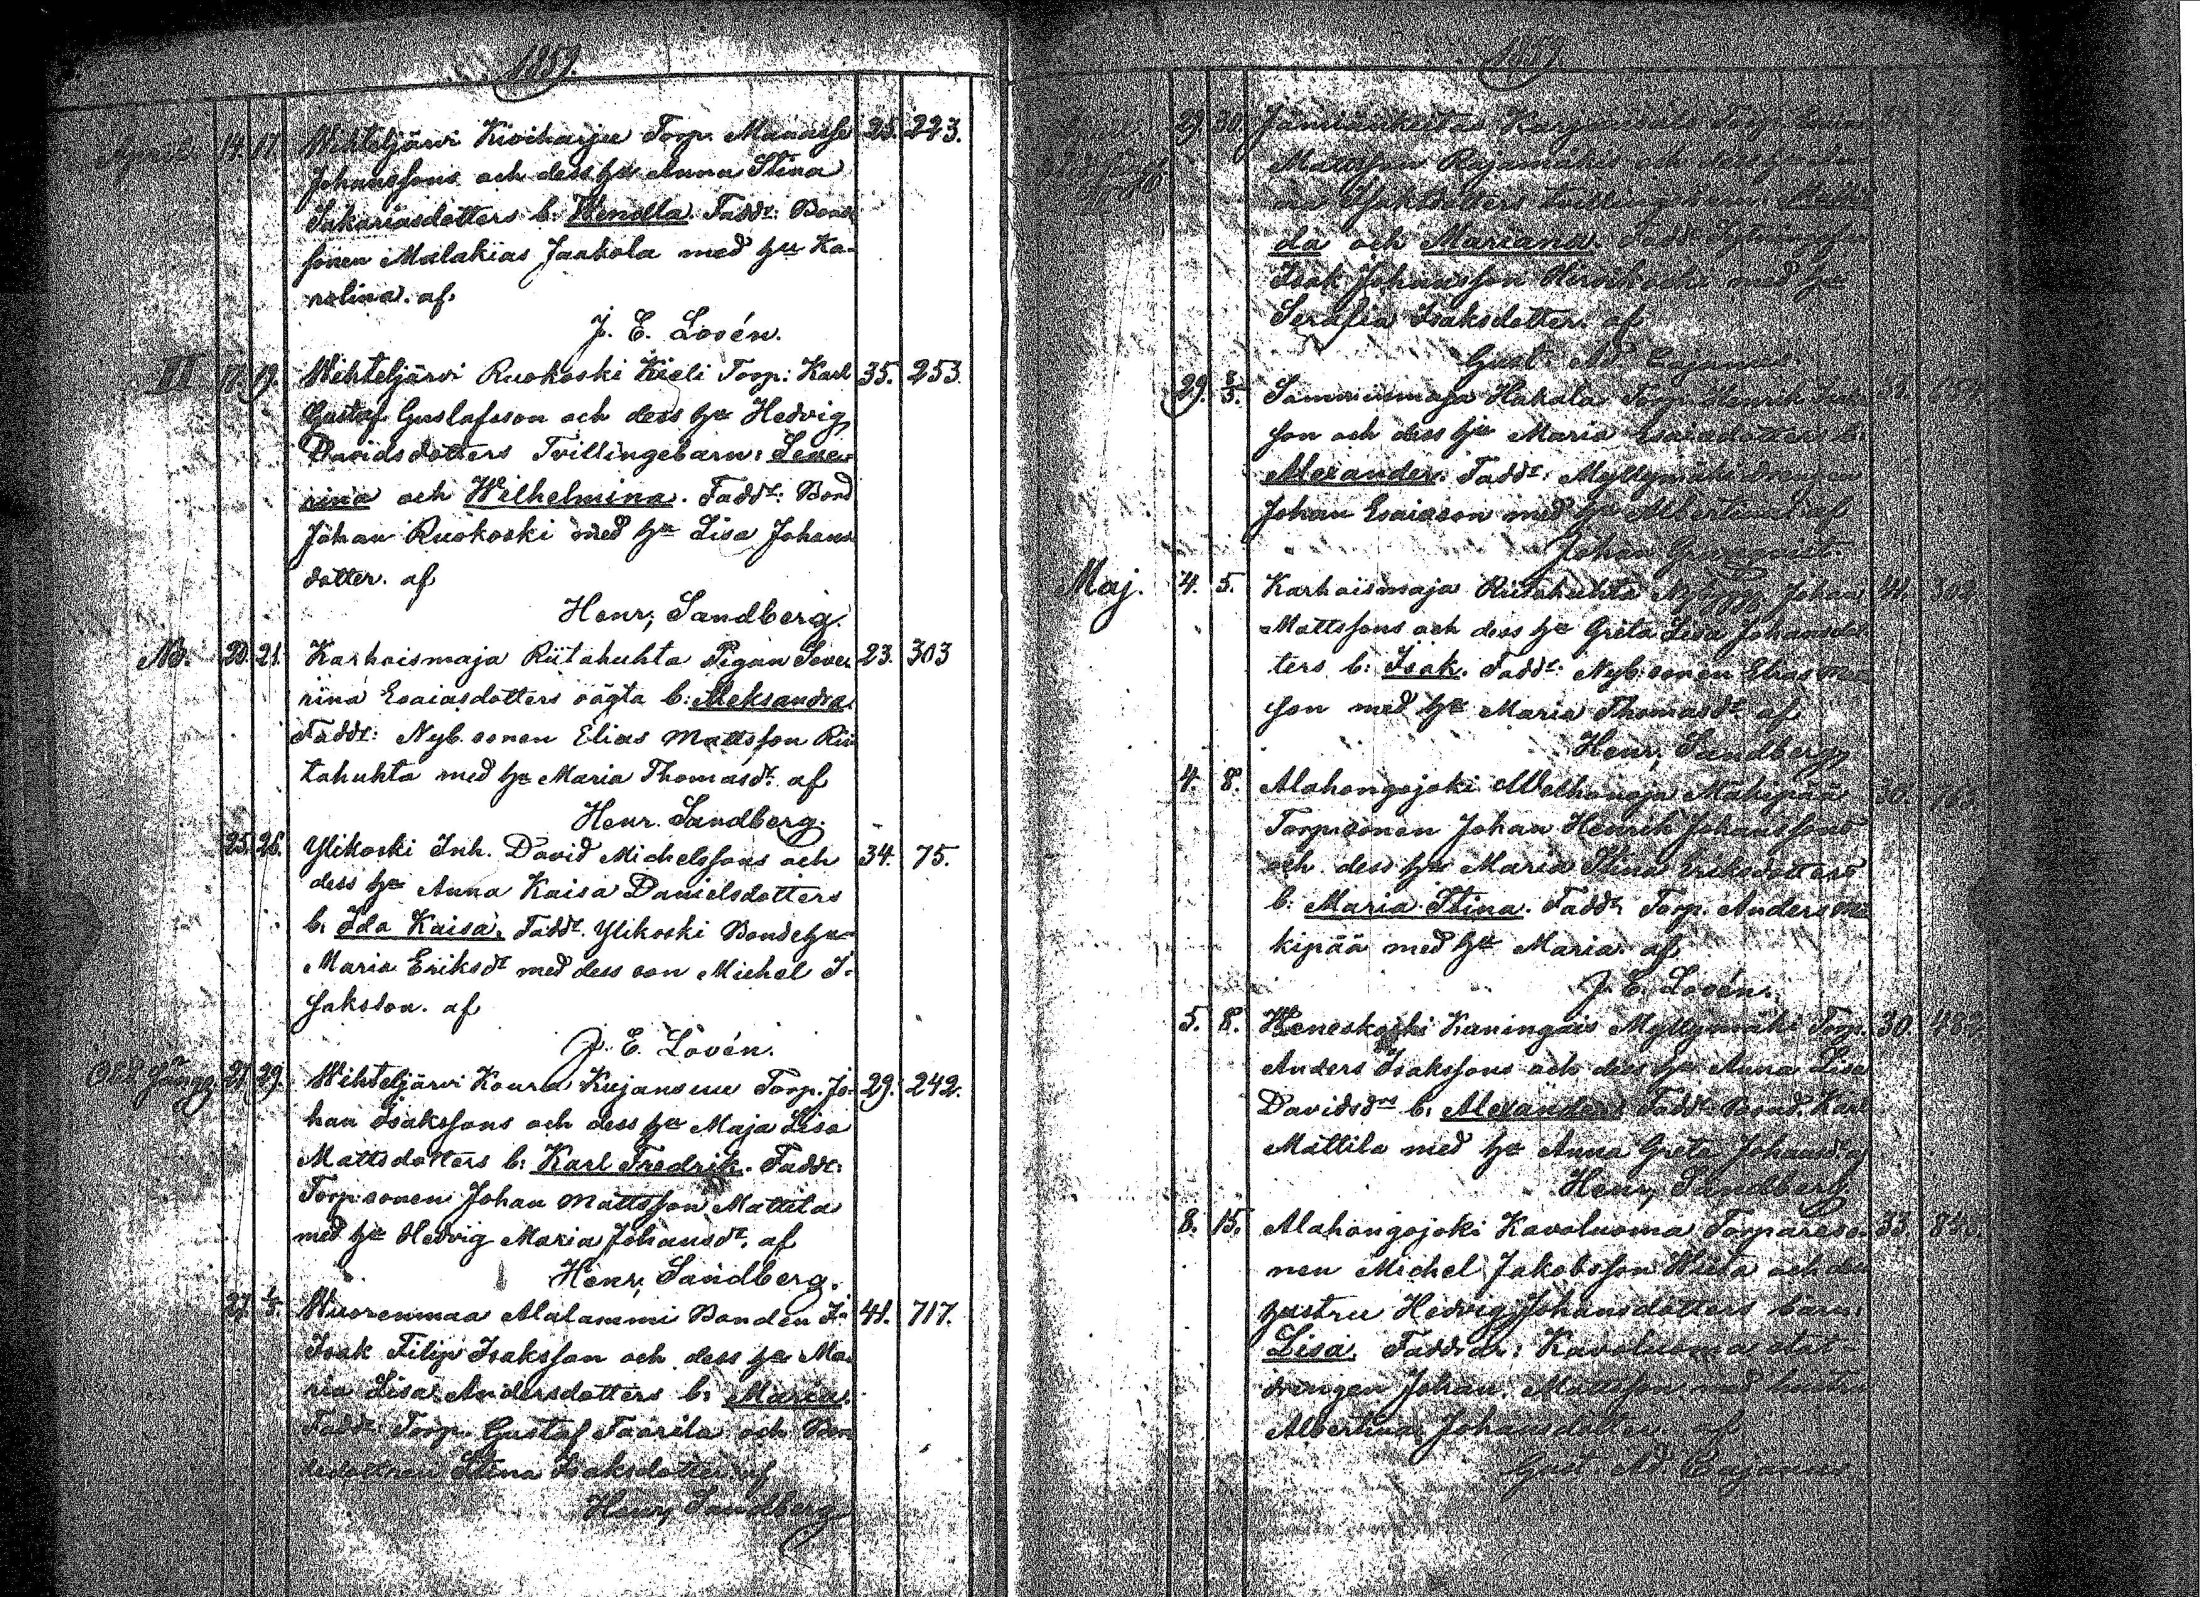 1859.
April. 14. 17. Wihteljärvi Kiviharju Torp. Manasse 25. 223.
Johanssons och dess hu Anna Stina
Sakariasdotters b: Wendla. Faddr: Bond
sonen Malakias Jaakola med hu Ka-
rolina. af.
J. E. Lovén.
II 17. 19. Wihteljärvi Ruokoski Kieli Torp: Karl 35. 253.
Gustaf Gustafsson och dess hu Hedvig
Davidsdotters Tvillingebarn: Seve-
rina och Wilhelmina. Faddr: Bond
Johan Ruokoski med hu Lisa Johans
dotter. af
Henr, Sandberg.
No. 20. 21. Karhoismaja Riitahuhta Pigan Seve- 23. 303
rina Esaiasdotters oägta b: Aleksandra.
Faddr: Nyb. sonen Elias Mattsson Rii
tahuhta med hu Maria Thomasdr. af
Henr. Sandberg.
25. 26. Ylikoski Inh. David Michelssons och 34. 75.
dess hu Anna Kaisa Danielsdotters
b. Ida Kaisa. Faddr. Ylikoski Bondehu
Maria Eriksdr med dess son Michel I-
saksson. af
J. E. Lovén.
27. 29. Wihteljärvi Koura Kujansuu Torp. Jo- 29. 242.
han Isakssons och dess hu Maja Lisa
Mattsdotters b: Karl Fredrik. Faddr:
Torp. sonen Johan Mattsson Mattila
med hu Hedvig Maria Johansdr. af
Henr, Sandberg.
27. 1/5. Wuorenmaa Alalammi Bonden I- 41. 717.
Isak Filip Isaksson och dess hu Ma-
ria Lisa Andersdotters b: Maria.
Faddr. Torp. Gustaf Faarila och Bon
dedottren Stina Isaksdotter af
Henr, Sandberg
1859.
29. 30. Torp.
Mattsson Rajamäki och dess hu
Isaksdotters tvillingebarn:
da och Mariana. Faddr
Isak Johansson med hu
Serafia Isaksdotter. af
Gust. Ad. Cajanus
29. 8/5. Sammismaja Hakala Torp. Henrik
son och dess hu Maria Esaiasdotters b.
Alexander. Faddr: Myllymäki drengen
Johan Esaiason med hu Albertina af
Johan
Maj. 4. 5. Karhoismaja Riitahuhta Nybygg. Johan 41.
Mattssons och dess hu Greta Lisa Johansdot
ters b: Isak. Faddr: Nyb: sonen Elias Matts
son med hu Maria Thomasdr. af
Henr, Sandberg
4. 8. Alahongojoki Melhonoja Mäkipää 30.
Torp.sonen Johan Henrik Johanssons
och dess hu Maria Stina Eriksdotters
b. Maria Stina. Faddr. Torp. Anders Mä
kipää med hu Maria. af
J. E. Lovén.
5. 8. Weneskoski Kaningais Myllymäki Torp. 30.
Anders Isakssons och dess hu Anna Lisa
Davidsdrs b. Alexander. Faddr. Bond. Karl
Mattila med hu Anna Greta Johansdr. af
Henr, Sandberg.
8. 15. Alahongojoki Kavoluoma Torpareso- 33.
nen Michel Jakobsson Wiita och dess
hustru Hedvig Johansdotters barn:
Lisa. Faddrar: Kavoluoma
drengen Johan. Mattsson med hustru
Albertina Johansdotter. af
Gust. Ad. Cajanus